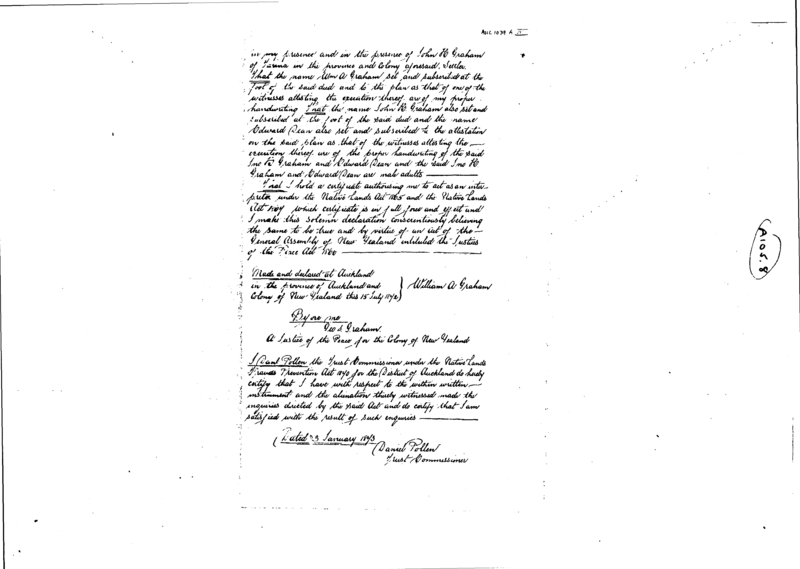 in my presence and in the presence of John H Graham
of Tairua in the province and Colony aforesaid Settler
That the name Wm A Graham set and subscribed at the
foot of the said deed and to the plan as that of one of the
witnesses attesting the execution thereof are of my proper
handwriting That the name John H Graham also set and
subscribed at the foot of the said deed and the name
Edward Dean also set and subscribed to the attestation
on the said plan as that of the witnesses attesting the
execution thereof are of the proper handwriting of the said
Jno H Graham and Edward Dean and the said Jno H
Graham and Edward Dean are male adults
That I hold a certificate authorising me to act as an inter-
preter under the Native Lands Act 1865 and the Native Lands
Act 1867 which certificate is in full force and effect and
I make this solemn declaration conscientiously believing
the same to be true and by virtue of an Act of the
General Assembly of New Zealand intituled the Justices
of the Peace Act
Made and declared at Auckland
in the province of Auckland and
Colony of New Zealand this 15 July 1872
William A Graham
Before me
Geo S Graham.
A Justice of the Peace for the Colony of New Zealand
I Danl Pollen the Trust Commissioner under the Native Lands
Frauds Prevention Act 1870 for the District of Auckland do hereby
certify that I have with respect to the within written
instrument and the alienation thereby witnessed made the
inquiries directed by the said Act and do certify that I am
satisfied with the result of such enquiries
Dated 23 January 1873
Daniel Pollen
Trust Commissioner
A105.8